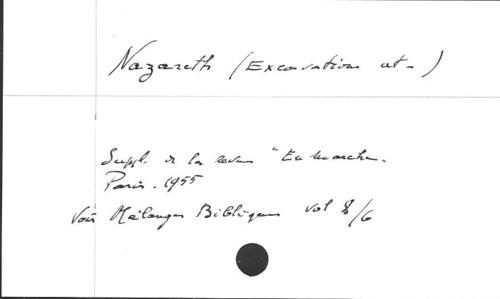 Nazareth (Excavations at - )
Suppl. de la revue "En marche.
Paris. 1955
Voir Mélanges Bibliques vol 8/6